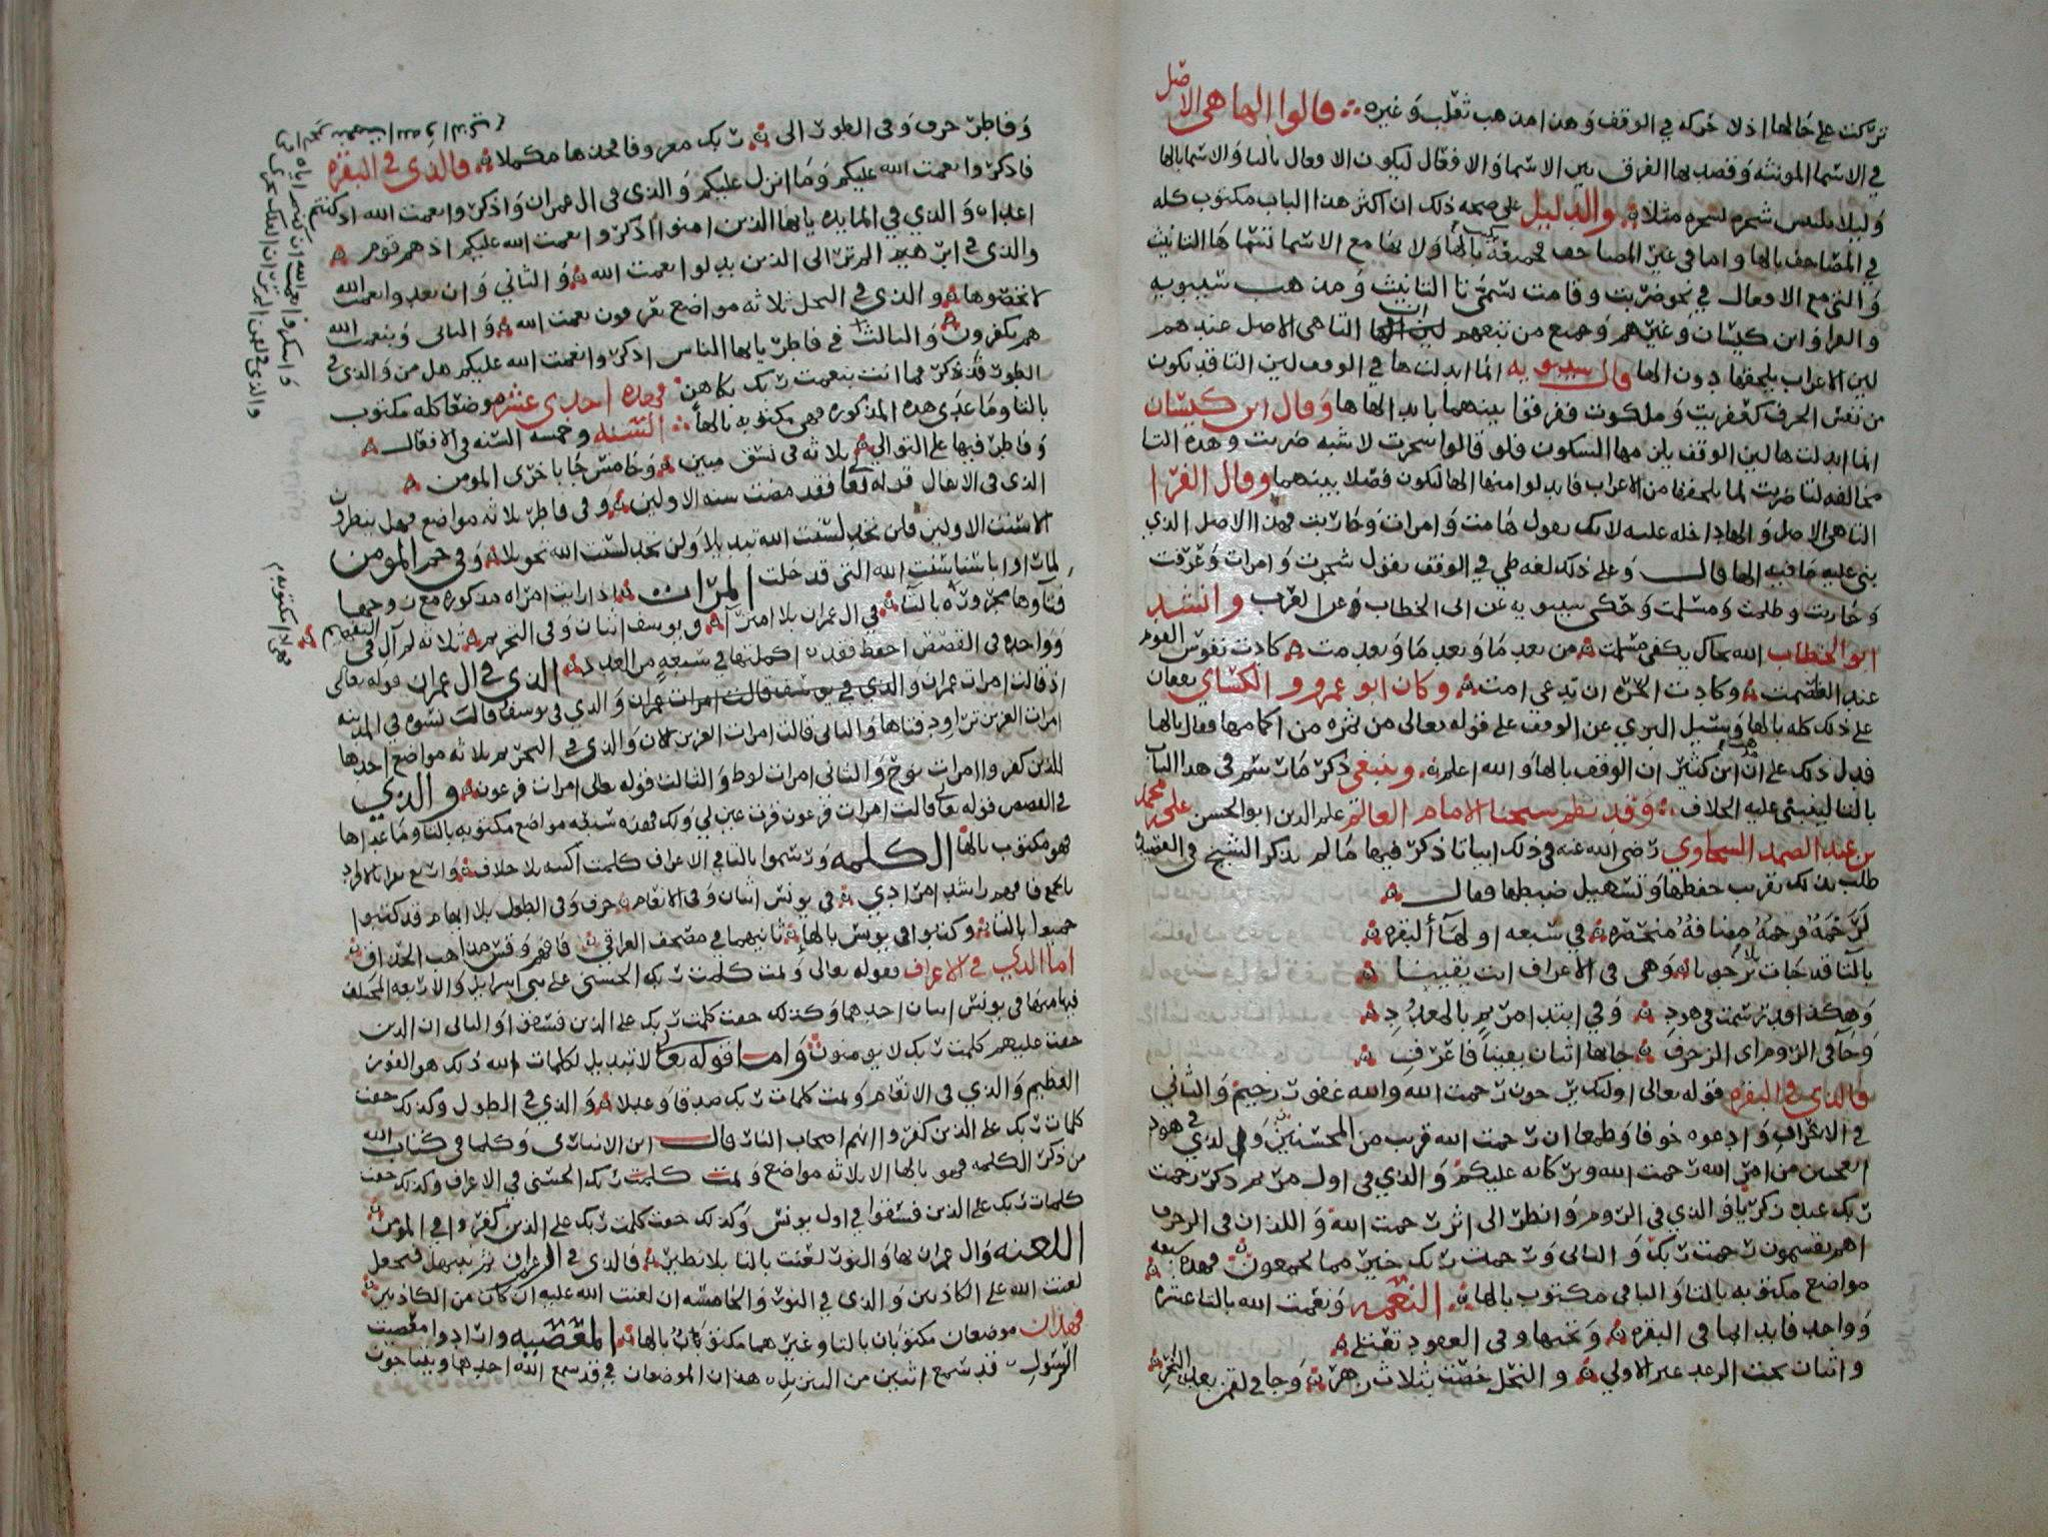 تركت على حالها اذ لا حركه في الوقف وهذا مذهب ثعلب وغيره قالوا الها هي الاصل
في الاسما المونثه وقصد بها الفرق بين الاسما والافعال ليكون الافعال بالتا والاسما بالها
وليلا يلبس شجره لشجره مثلا والدليل على صحه ذلك ان اكثر هذا الباب مكتوب كله
في المصاحف بالها واما في غير المصاحف فجميعه يكتب بالها ولانها مع الاسما تنتها ها التانيث
والتي مع الافعال في نحو ضربت وقامت تسمى تا التانيث ومذهب سيبويه
والفرا وابن كيسان وغيرهم وجميع من تبعهم ان التا هي الاصل عندهم
لين الاعراب يلحقها دون الها قال سيبويه انما ابدلت ها في الوقف لين التا قد يكون
من نفس الحرف كعفريت وملكوت ففرقوا بينهما بابدالها ها وقال ابن كيسان
انما ابدلت ها لين الوقف يلزمها السكون فلو قالوا شجرت لاشبه ضربت وهذه التا
مخالفه لتا ضربت لما يلحقها من الاعراب فابدلوا منها الها ليكون فصلا بينهما وقال الفرا
التا هي الاصل والها داخله عليه لانك تقول قامت وامرات وجاريت فهذا الاصل الذي
بني عليه ما فيه الها قال وعلى ذلك لغه طي في الوقف يقول شجرت وامرات وغرفت
وجاريت وطلحت ومسلمت وحكى سيبويه عن ابي الخطاب عن العرب وانشد
ابو الخطاب الله نجاك بكفي مسلمت من بعد ما وبعد ما وبعد مت كادت نفوس القوم
عند الغلصمت وكادت الحره ان تدعى امت وكان ابو عمرو والكساي يقفان
على ذلك كله بالها وسيل البزي عن الوقف على قوله تعالى من ثمره من اكمامها فقال بالها
فدل ذلك على ان مذهب ابن كثير ان الوقف بالها والله اعلم وينبغي ذكر ما رسم في هذا الباب
بالتا لينبني عليه الخلاف وقد نظم شيخنا الامام العالم علم الدين ابو الحسن علي بن محمد
بن عبد الصمد السخاوي رضي الله عنه في ذلك ابياتا ذكر فيها ما لم يذكر الشيخ في العقيله
طلب بذلك تقريب حفظها وتسهيل ضبطها فقال
لرحمه فرحمه مضافه منحصره في سبعه اولها البقره
بالتا قد جات يرجون بلا وهي في الاعراف اتت يقينا
وهكذا قد رسمت في هود وفي ابتدا مريم بالمعدود
وجا في الروم اي الزخرف جاها اثنان يقينا فاعرف
فالذي في البقره قوله تعالى اولئك يرجون رحمت الله والله غفور رحيم والثاني
في الاعراف وادعوه خوفا وطمعا ان رحمت الله قريب من المحسنين والذي في هود
اتعجبين من امر الله رحمت الله وبركاته عليكم والذي في اول مريم ذكر رحمت
ربك عبده زكريا والذي في الروم وانظر الى اثر رحمت الله واللذان في الزخرف
اهم يقسمون رحمت ربك والثاني ورحمت ربك خير مما يجمعون فهذه سبعه
مواضع مكتوبه بالتا والباقي مكتوب بالها النعمه ونعمت الله بالتا عشره
وواحد فابدابها في البقره وتحتها وفي العقود تقتفله
واثنان تحت الرعد غير الاولي والنحل خصت بثلاث زهر وجا في لقمن
وفاطر حرف وفي الطور الى ربك معروفا فخذها مكملا فالذي في البقره
فاذكروا نعمت الله عليكم وما انزل عليكم والذي في ال عمران واذكروا نعمت الله اذ كنتم
اعدا والذي في المايده يايها الذين امنوا اذكروا نعمت الله عليكم اذ هم قوم
والذي في ابرهيم الم تر الى الذين بدلوا نعمت الله والثاني وان تعدوا نعمت الله
لا تحصوها والذي في النحل ثلاثه مواضع يعرفون نعمت الله والثاني وبنعمت الله
هم يكفرون والثالث في فاطر يايها الناس اذكروا نعمت الله عليكم هل من والذي في
الطور فذكر فما انت بنعمت ربك بكاهن فهذه احدى عشر موضعا كله مكتوب
بالتا وما عدى هذه المذكوره فهي مكتوبه بالها السنه وخمسه السنه في الانفال
وفاطر فيها على التوالي ثلاثه في نسق مبين وخامس جا باخرى المومن
الذي في الانفال قوله تعا فقد مضت سنه الاولين وفي فاطر ثلاثه مواضع فهل ينظرون
الا سنت الاولين فلن تجد لسنت الله تبديلا ولن تجد لسنت الله تحويلا وفي حم المومن
لما راوا باسنا سنت الله التي قد خلت المرات اذا رايت امراه مذكوره مع زوجها
فتاوها مجروره بالتا في ال عمران بلا امترا وبيوسف اثنان وفي التحريم ثلاثه لم ال في التفهيم
وواحده في القصص احفظ فقد اكملتها في سبعه من العدد الذي في ال عمران قوله تعالى
اذ قالت امرات عمران والذي في يوسف قالت امرات عمران والذي في يوسف قالت نسوه في المدينه
امرات العزيز تراود فتاها والثاني قالت امرات العزيز الان والذي في التحريم ثلاثه مواضع احدها
للذين كفروا امرات نوح والثاني امرات لوط والثالث قوله تعالى امرات فرعون والذي
في القصص قوله تعالى قالت امرات فرعون قرت عين لي ولك فهذه سبعه مواضع مكتوبه بالتا وما عداها
فهو مكتوب بالها الكلمه ورسموا بالتا في الاعراف كلمت اكسه بلا خلاف
في يونس اثنان وفي الانعام حرف وفي الطول بلا ابهام قد كتبوا
جميعها بالتا وكتبوا في يونس بالها ثانيهما في مصحف العراقي فافهم وقس مذاهب الحذاق
اما الذي في الاعراف فقوله تعالى وتمت كلمت ربك الحسنى على بني اسرايل والاربعه المختلف
فيها منها في يونس اثنان احدهما وكذلك حقت كلمت ربك على الذين فسقوا والثاني ان الذين
حقت عليهم كلمت ربك لا يومنون واما قوله تعا لا تبديل لكلمات الله ذلك هو الفوز
العظيم والذي في الانعام وتمت كلمات ربك صدقا وعدلا والذي في الطول وكذلك حقت
كلمات ربك على الذين كفروا انهم اصحاب النار قال ابن الانباري وكلما في كتاب الله
من ذكر الكلمه فهو بالها الا ثلاثه مواضع وتمت كلمت ربك الحسنى في الاعراف وكذلك حقت
كلمات ربك على الذين فسقوا في اول يونس وكذلك حقت كلمت ربك على الذين كفروا في المومن
اللعنه وال عمران بها والنور لعنت بالتا بلا نظير فالذي في ال عمران ثم نبتهل فنجعل
لعنت الله على الكاذبين والذي في النور والخامسه ان لعنت الله عليه ان كان من الكاذبين
فهذان موضعان مكتوبان بالتا وغيرهما مكتوبات بالها المعصيه وان ارادوا معصيت
الرسول قد سمع اثنين من التنزيل هذان الموضعان في قد سمع الله احدهما ويتناجون
واشكروا نعمت الله ان كنتم اياه تعبدون
والذي في لقمن الم تر ان الفلك تجري في البحر بنعمت الله